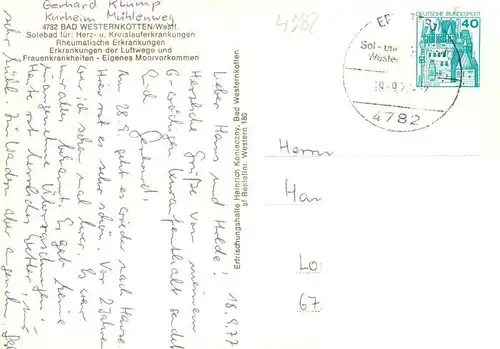 Gerhard Klump
Kurheim Mühlenweg
4782 BAD WESTERNKOTTEN/Westf.
Solebad für: Herz- u. Kreislauferkrankungen
Rheumatische Erkrankungen
Erkrankungen der Luftwege und
Frauenkrankheiten - Eigenes Moorvorkommen
18.9.77
Lieber Hans und Hulde!
Herzliche Grüße von meinem
6-wöchigen Kuraufenthalt sendet
Euch Gerhard!
Am 28.9. geht es wieder nach Hause
Hier ist es sehr schön. Vor 2 Jahren
war ich schon mal hier. Es war
mir alles bekannt. Es gab keine
unangenehme Überraschungen.
Heute ist herrliches Wetter, nur
sehr kühl. Im Wadern aber angenehm
Erfrischungshalle Heinrich Konieczny, Bad Westernkotten
sf Bestellnr. Western 180
4782
DEUTSCHE BUNDESPOST
40
Sol- und
4782
Herrn
Han
Lo
67